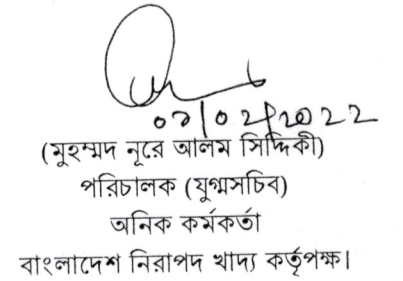 ০৭/০২/২০২২
(মুহম্মদ নূরে আলম সিদ্দিকী)
পরিচালক (যুগ্মসচিব)
অনিক কর্মকর্তা
বাংলাদেশ নিরাপদ খাদ্য কর্তৃপক্ষ।